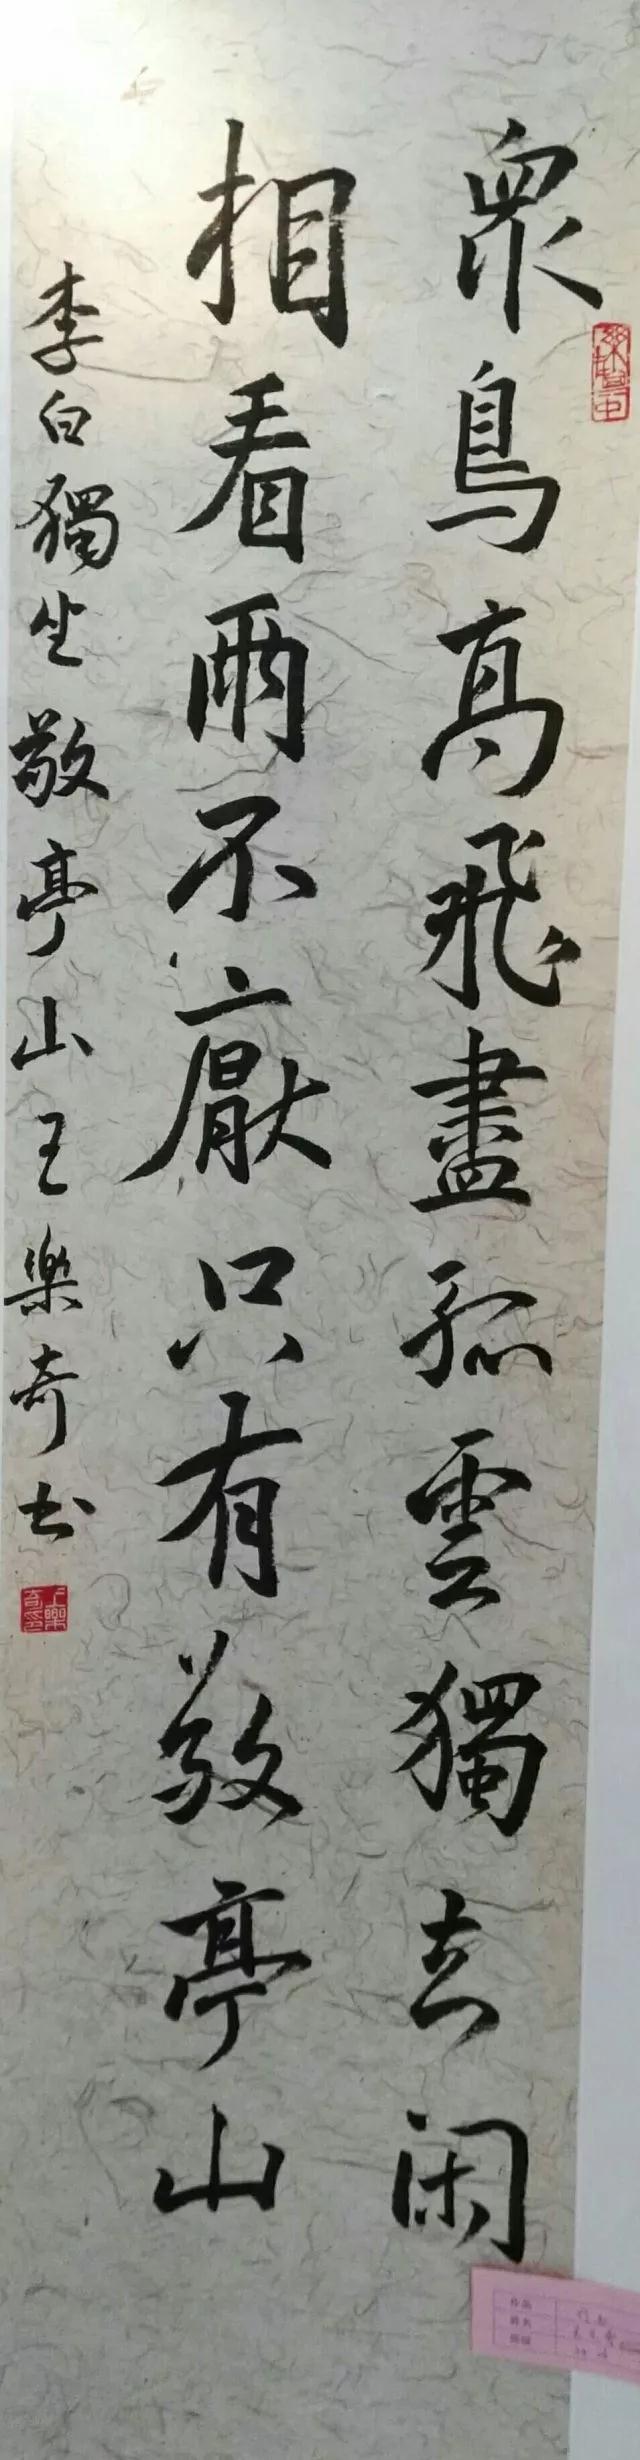 眾鳥高飛盡孤雲獨去閑
相看兩不厭只有敬亭山
李白獨坐敬亭山王樂奇书